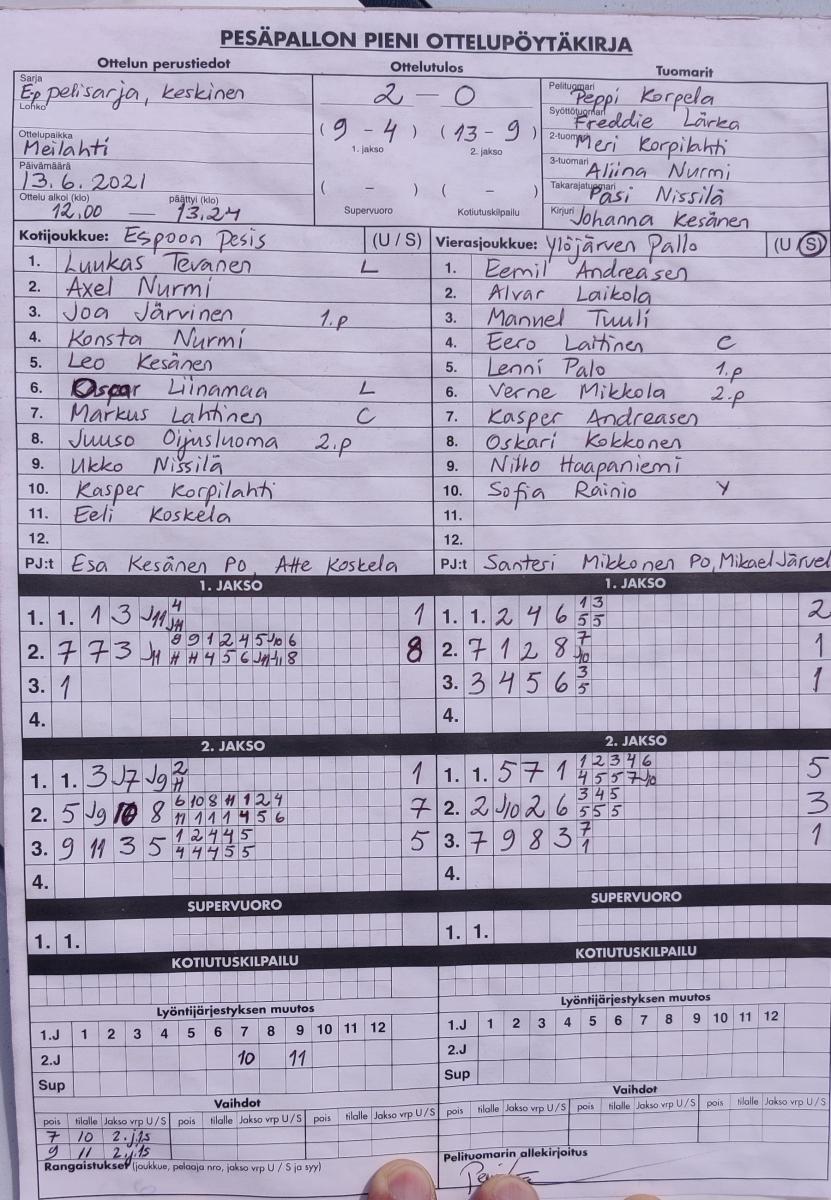 PESÄPALLON PIENI OTTELUPÖYTÄKIRJA
Ottelun perustiedot
Sarja
E-p pelisarja, keskinen
Lohko
Ottelupaikka
Meilahti
Päivämäärä
13.6.2021
Ottelu alkoi (klo) päättyi (klo)
12.00 — 13.24
Ottelutulos
2 — 0
(9 - 4) (13 - 9)
1. jakso 2. jakso
( - ) ( - )
Supervuoro Kotiutuskilpailu
Tuomarit
Pelituomari Peppi Korpela
Syöttötuomari Freddie Lärka
2-tuomari Meri Korpilahti
3-tuomari Aliina Nurmi
Takarajatuomari Pasi Nissilä
Kirjuri Johanna Kesänen
Kotijoukkue: Espoon Pesis (U / S)
1. Luukas Tevanen L
2. Axel Nurmi
3. Joa Järvinen 1.p
4. Konsta Nurmi
5. Leo Kesänen
6. Oscar Liinamaa L
7. Markus Lahtinen C
8. Juuso Oijusluoma 2.p
9. Ukko Nissilä
10. Kasper Korpilahti
11. Eeli Koskela
12.
PJ:t Esa Kesänen PO, Atte Koskela
Vierasjoukkue: Ylöjärven Pallo (U / S)
1. Eemil Andreasen
2. Alvar Laikola
3. Manuel Tuuli
4. Eero Laitinen C
5. Lenni Palo 1.p
6. Verne Mikkola 2.p
7. Kasper Andreasen
8. Oskari Kokkonen
9. Niilo Haapaniemi
10. Sofia Rainio Y
11.
12.
PJ:t Santeri Mikkonen PO, Mikael Järvel
1. JAKSO
1. 1. 1 3 J11 4 1
2. 7 7 3 J1 8 9 1 2 4 5 J10 6 8
3. 1
4.
2. JAKSO
1. 1. 3 J7 J9 2 1
11
2. 5 J9 10 8 6 10 8 11 1 2 4 7
11 1 1 1 4 5 6
3. 9 11 3 5 1 2 4 4 5 5
4 4 4 5 5
4.
SUPERVUORO
1. 1.
KOTIUTUSKILPAILU
Lyöntijärjestyksen muutos
1.J 1 2 3 4 5 6 7 8 9 10 11 12
2.J 10 11
Sup
Vaihdot
pois tilalle Jakso vrp U / S pois tilalle Jakso vrp U / S pois tilalle Jakso vrp U / S
7 10 2.j.1s
9 11 2.j.1s
Rangaistukset (joukkue, pelaaja nro, jakso vrp U / S ja syy)
1. JAKSO
1. 1. 2 4 6 1 3 2
5 5
2. 7 1 2 8 7 1
J10
3. 3 4 5 6 3 1
5
4.
2. JAKSO
1. 1. 5 7 1 1 2 3 4 6 5
4 5 5 7 J10
2. 2 J10 2 6 3 4 5 3
5 5 5
3. 7 9 8 3 7 1
1
4.
SUPERVUORO
1. 1.
KOTIUTUSKILPAILU
Lyöntijärjestyksen muutos
1.J 1 2 3 4 5 6 7 8 9 10 11 12
2.J
Sup
Vaihdot
pois tilalle Jakso vrp U / S pois tilalle Jakso vrp U / S pois tilalle Jakso vrp U / S
Pelituomarin allekirjoitus